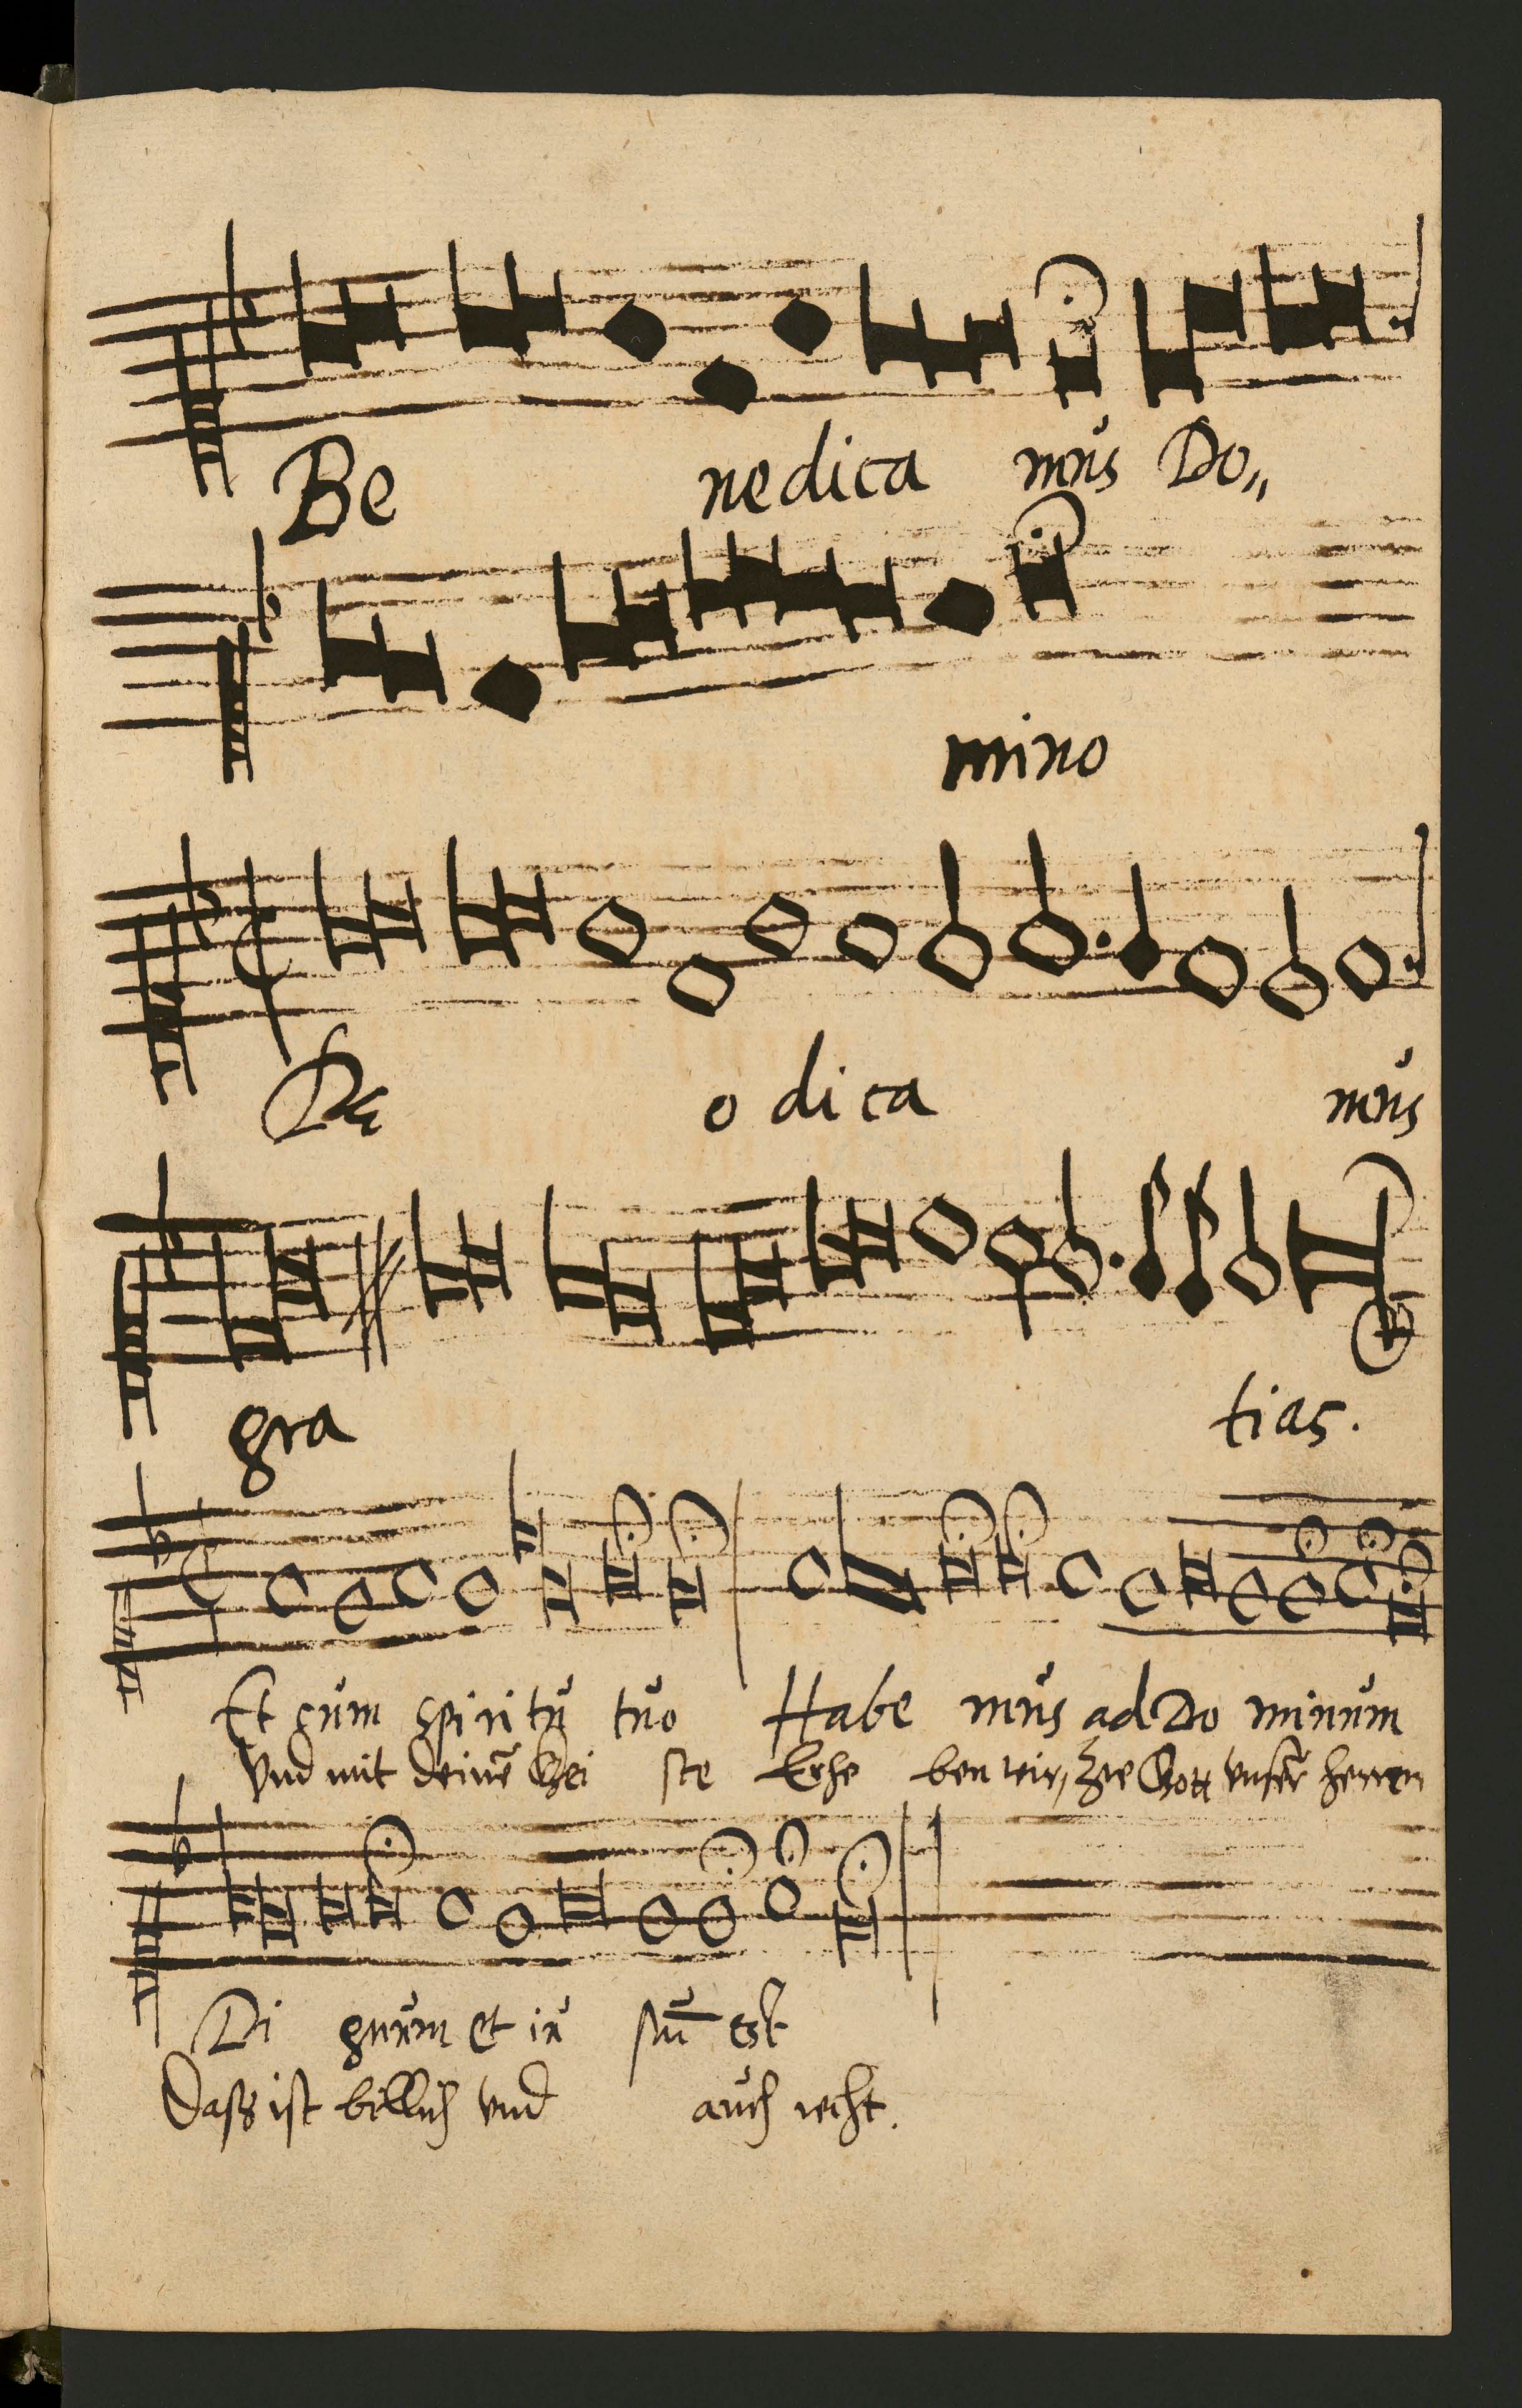 Be nedica mus Do„
mino
De o dica mus
gra tias.
Et cum spiritu tuo Habe mus ad Do minum
Vnd mit deinē Gei ste Erhe ben wir, zue Gott vnserr herren
Di gnum et iu stū est
Dass ist billich vnd auch recht.